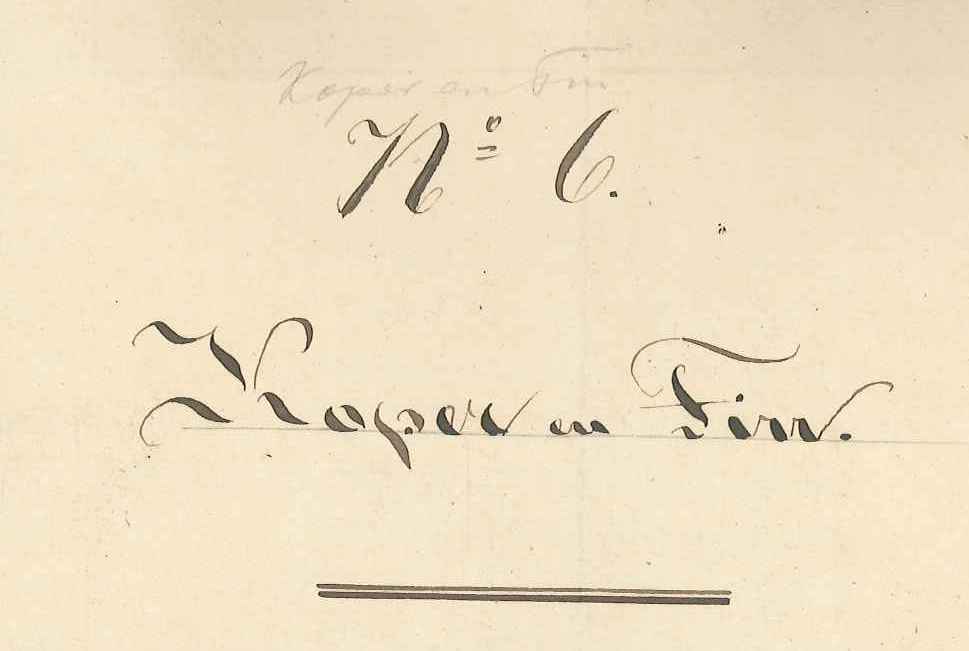 Koper en Tin
Nº 6.
Koper en Tin.